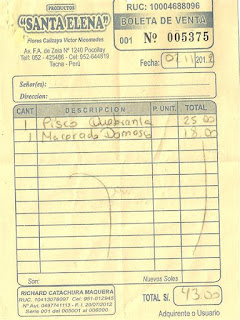 PRODUCTOS
"SANTA ELENA"
Flores Callaya Victor Nicomedes
Av. F.A. de Zela Nº 1240 Pocollay
Telf: 052 - 425486 - Cel: 952-644819
Tacna - Perú
RUC: 10004688096
BOLETA DE VENTA
001 Nº 005375
Fecha: 07 11 201
Señor(es):
Direccion:
CANT DESCRIPCION P. UNIT. TOTAL
1 Pisco Quebranta 25.00
1 Macerado Damasco 18.00
Son: Nuevos Soles
RICHARD CATACHURA MAQUERA
RUC. 10413078097 Cel: 951-012945
Nº Aut. 0497741113 - F.I. 20/07/2012
Série 001 del 005001 al 006000
TOTAL S/. 43.00
Adquirente o Usuario